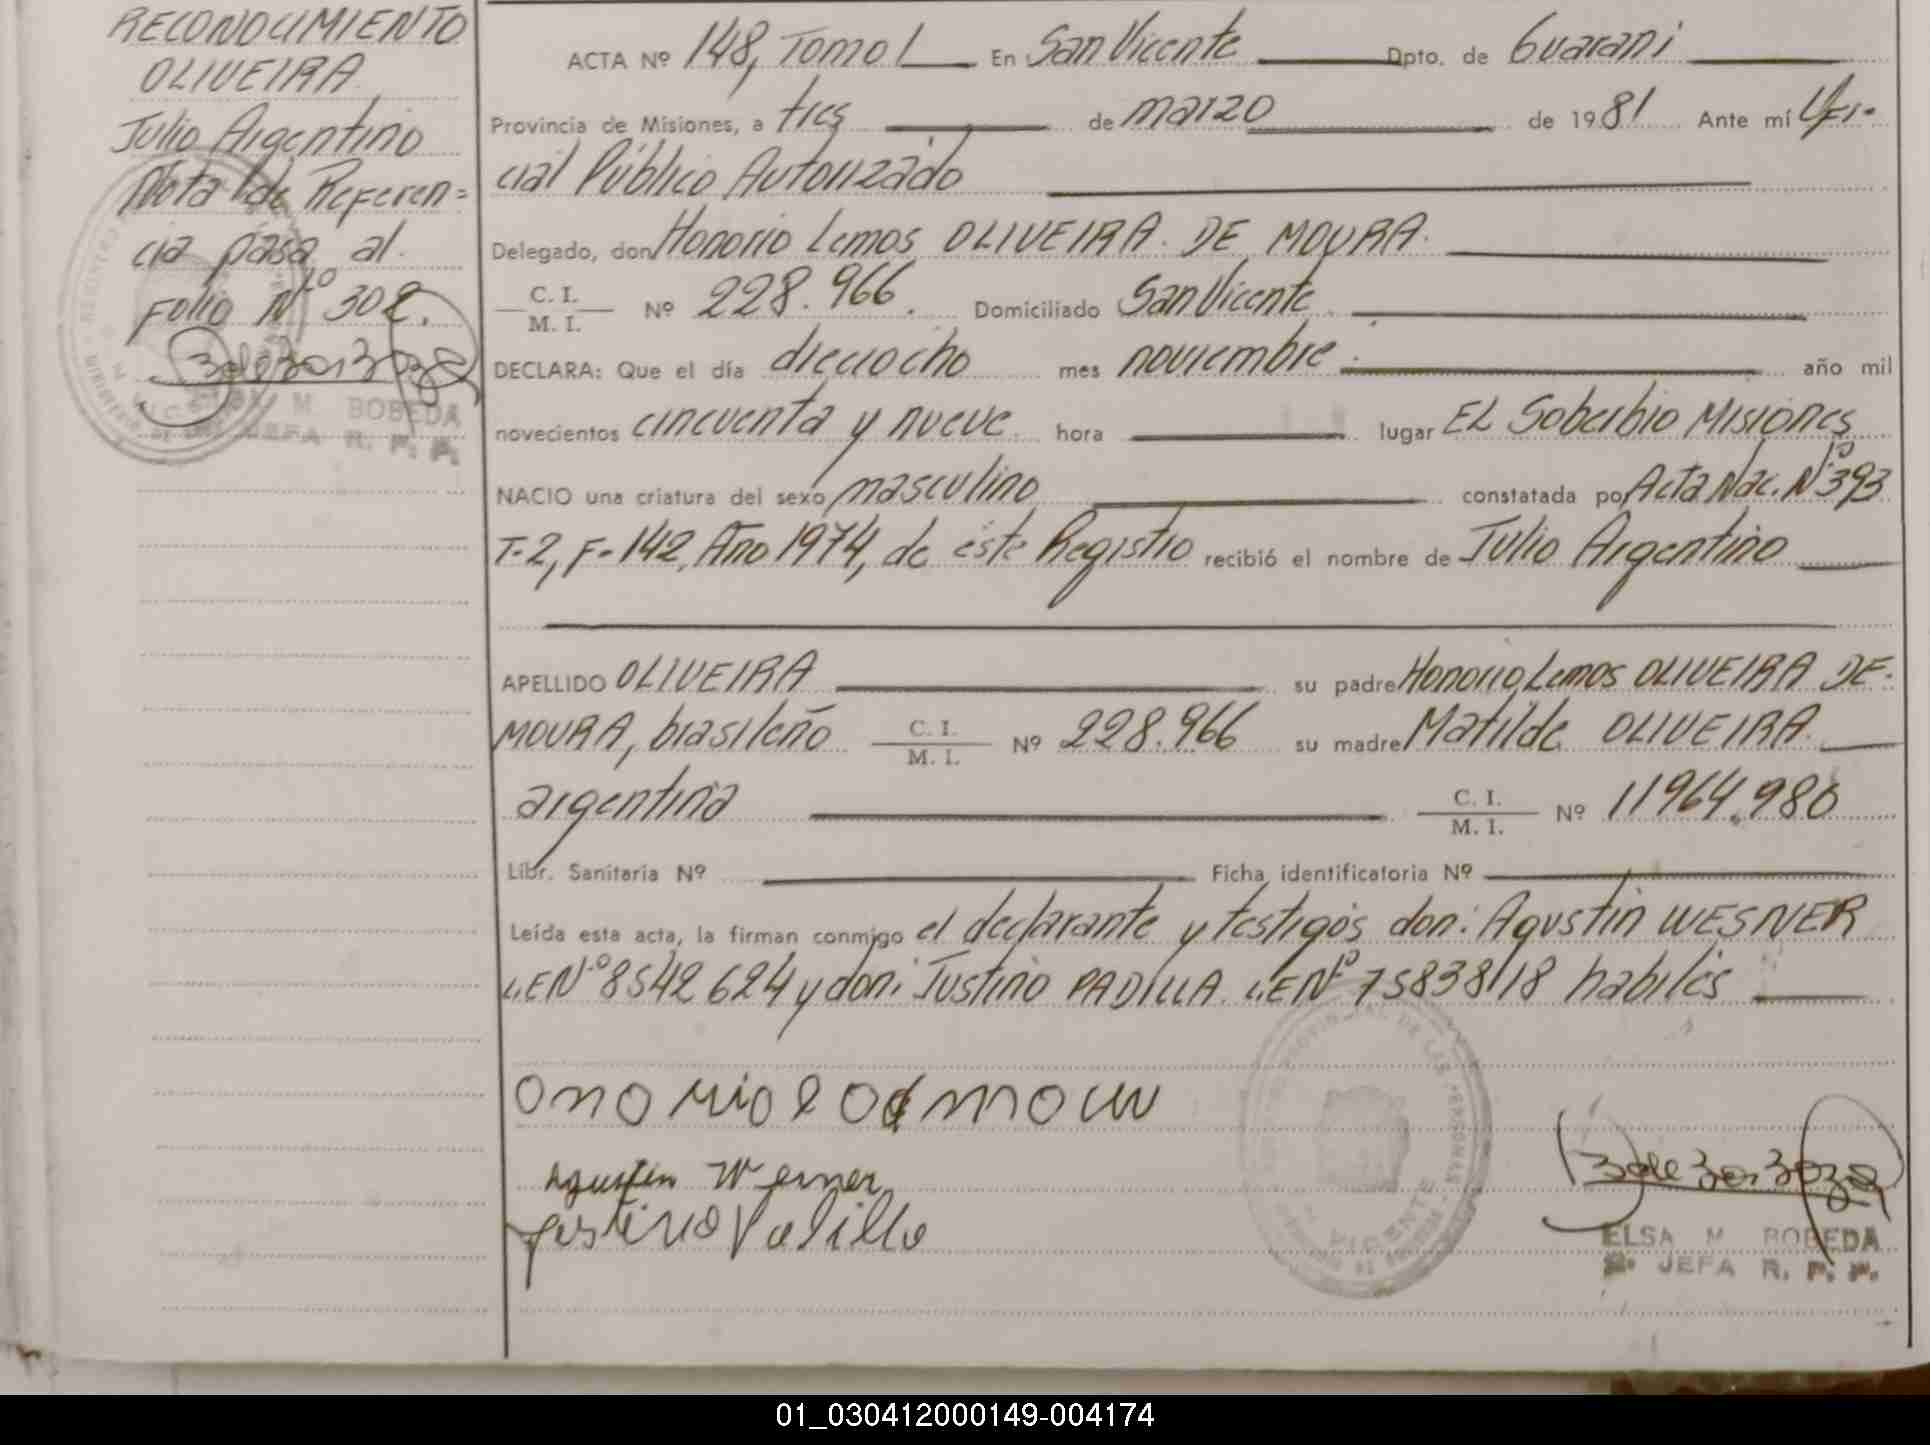 RECONOCIMIENTO
OLIVEIRA
Julio Argentino
Nota de Referen=
cia pasa al
Folio Nº 302.
ELSA M BOBEDA
JEFA R. P. P.
ACTA Nº 148, Tomo I En San Vicente Dpto. de Guarani
Provincia de Misiones, a tres de marzo de 1981 Ante mí Ofi-
cial Público Autorizado
Delegado, don Honorio Lemos OLIVEIRA DE MOURA.
C. I.
M. I. Nº 228.966. Domiciliado San Vicente
DECLARA: Que el día dieciocho mes noviembre año mil
novecientos cincuenta y nueve hora lugar EL Soberbio Misiones
NACIO una criatura del sexo masculino constatada por Acta Nac. Nº 393
T-2, F-142, Año 1974, de éste Registro recibió el nombre de Julio Argentino
APELLIDO OLIVEIRA su padre Honorio Lemos OLIVEIRA DE
MOURA, brasileño C. I. M. I. Nº 228.966 su madre Matilde OLIVEIRA
argentina C. I. M. I. Nº 11964.980
Libr. Sanitaria Nº Ficha identificatoria Nº
Leída esta acta, la firman conmigo el declarante y testigos don: Agustin WESNER
L.E Nº 8542624 y don: Justino PADILLA L.E Nº 75838118 habiles
Agusten Werner
Justino Padilla
VICENTE
ELSA M BOBEDA
JEFA R. P. P.
01_030412000149-004174